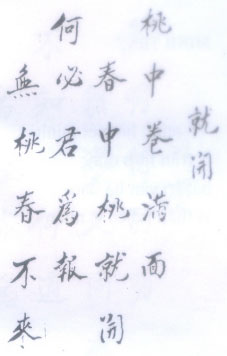 就開
桃中卷滿面
春中桃就開
何必君為報
無桃春不來